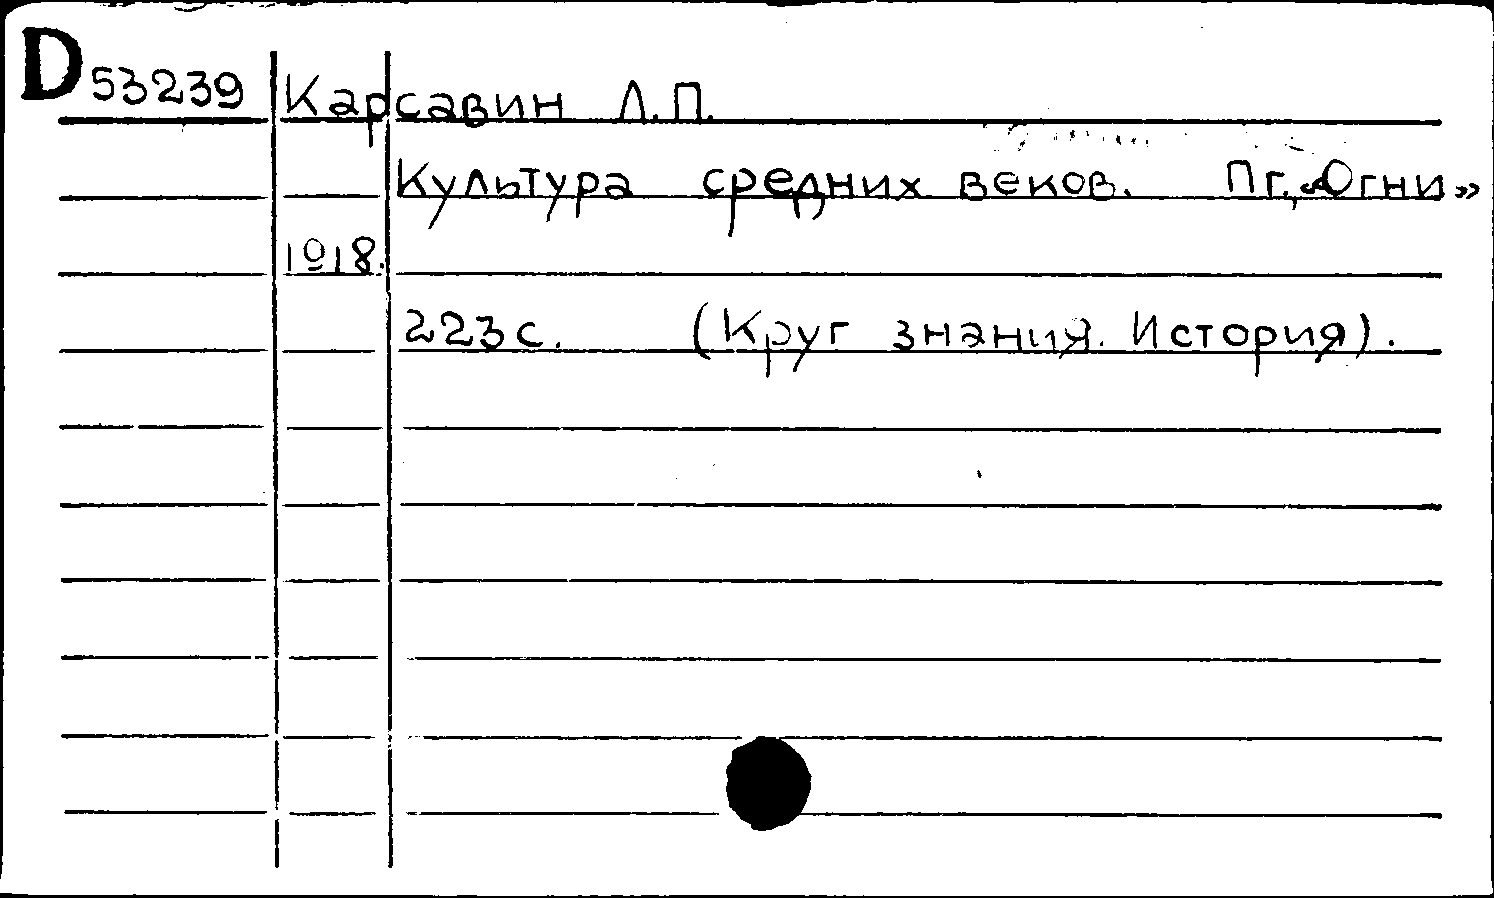 D 53239 Карсавин Л.П.
Культура средних веков. Пг., «Огни»
1918.
223с. (Круг знания. История).